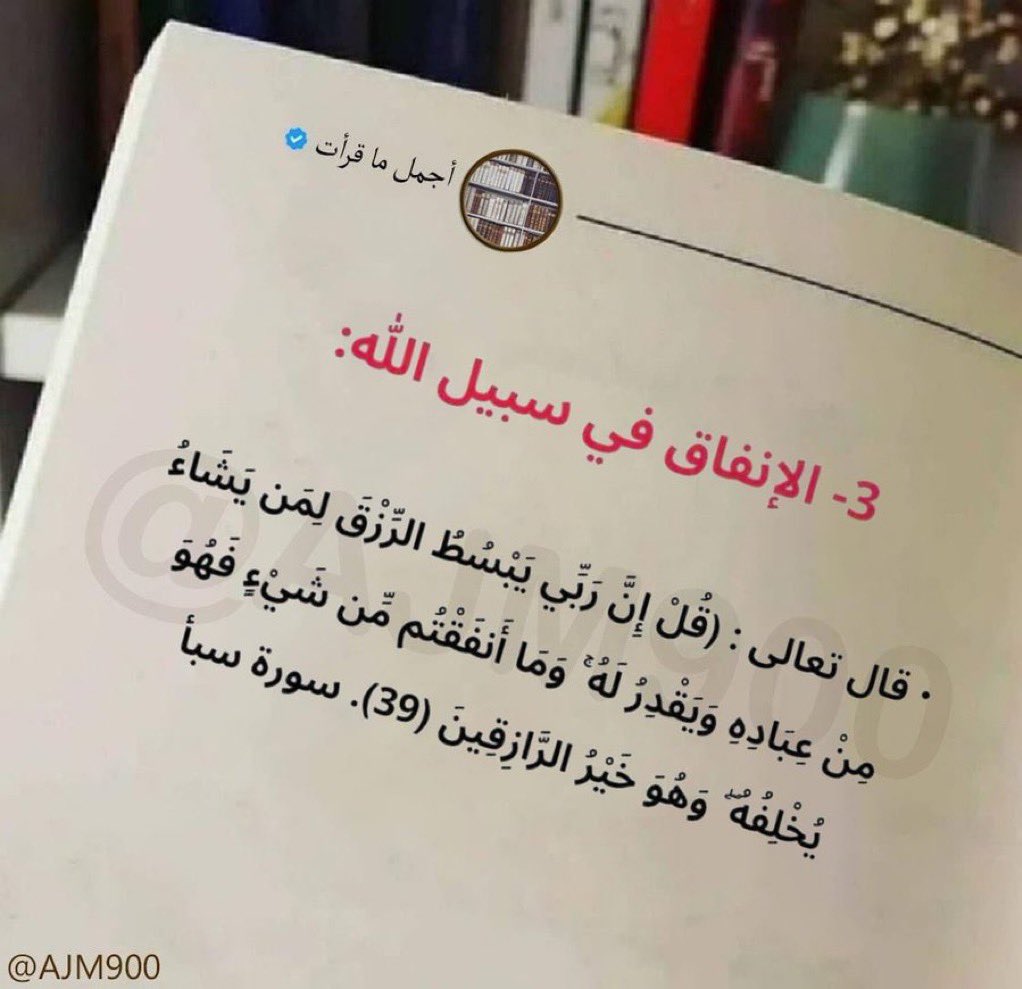 أجمل ما قرأت
3- الإنفاق في سبيل الله:
• قال تعالى : (قُلْ إِنَّ رَبِّي يَبْسُطُ الرِّزْقَ لِمَن يَشَاءُ
مِنْ عِبَادِهِ وَيَقْدِرُ لَهُ ۚ وَمَا أَنفَقْتُم مِّن شَيْءٍ فَهُوَ
يُخْلِفُهُ ۖ وَهُوَ خَيْرُ الرَّازِقِينَ (39). سورة سبأ
@AJM900
@AJM900